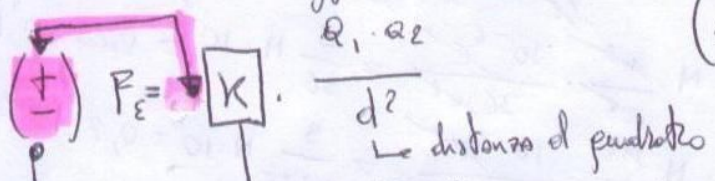 (±) F_ε = K · Q₁ · Q₂ / d²
distanza al quadrato